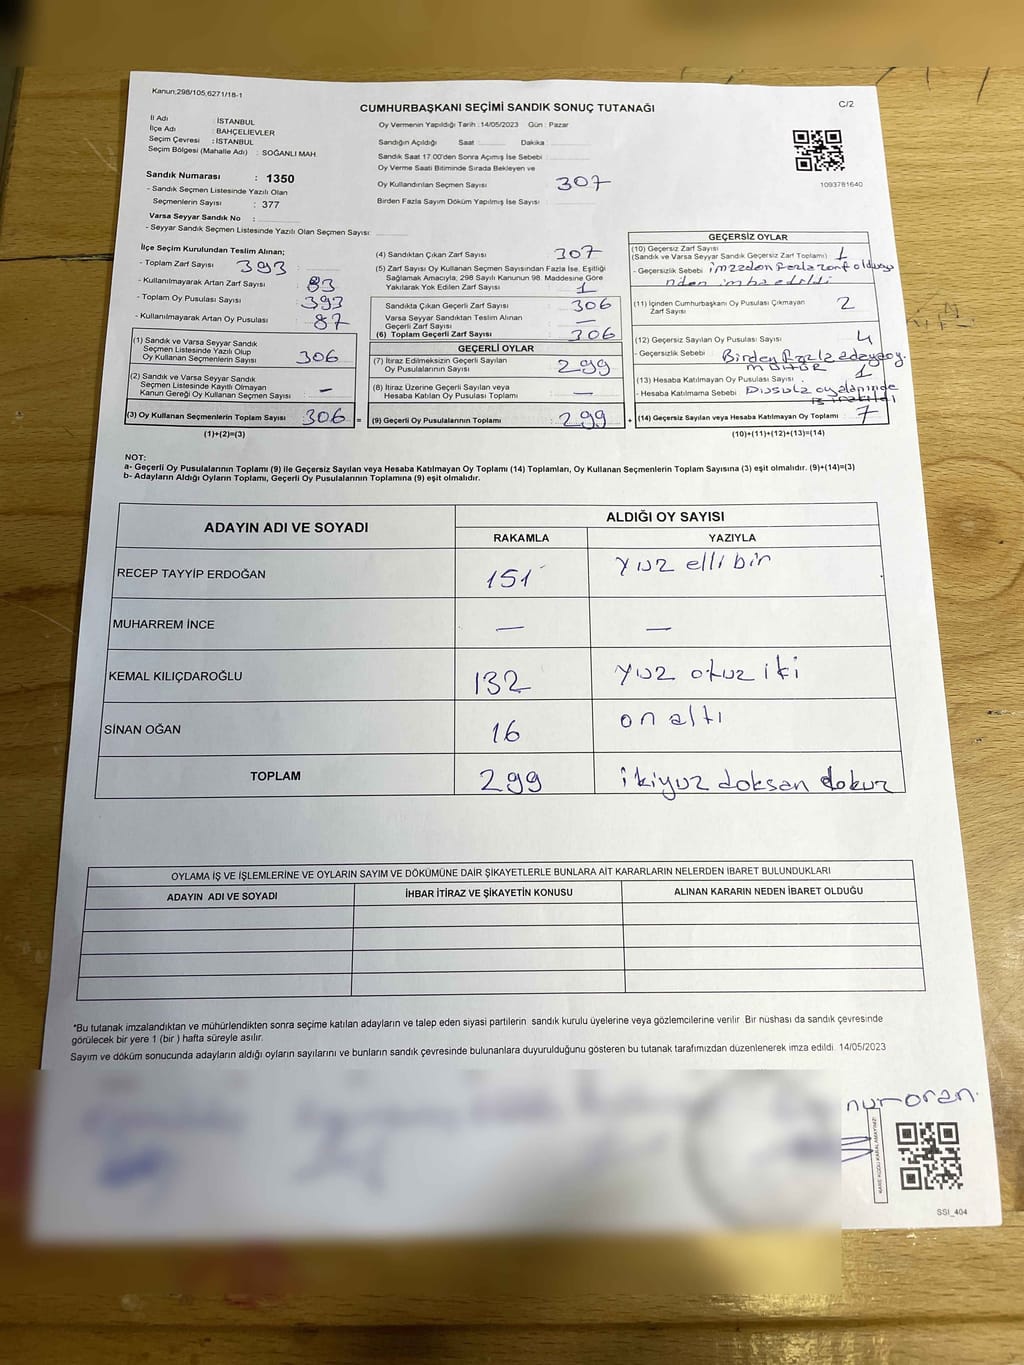 Kanun;298/105,6271/18-1
CUMHURBAŞKANI SEÇİMİ SANDIK SONUÇ TUTANAĞI
C/2
İl Adı : İSTANBUL
İlçe Adı : BAHÇELİEVLER
Seçim Çevresi : İSTANBUL
Seçim Bölgesi (Mahalle Adı) : SOĞANLI MAH.
Sandık Numarası : 1350
- Sandık Seçmen Listesinde Yazılı Olan
Seçmenlerin Sayısı : 377
Varsa Seyyar Sandık No :
- Seyyar Sandık Seçmen Listesinde Yazılı Olan Seçmen Sayısı:
Oy Vermenin Yapıldığı Tarih :14/05/2023 Gün : Pazar
Sandığın Açıldığı Saat : Dakika :
Sandık Saat 17.00'den Sonra Açımış İse Sebebi :
Oy Verme Saati Bitiminde Sırada Bekleyen ve
Oy Kullandırılan Seçmen Sayısı 307
Birden Fazla Sayım Döküm Yapılmış İse Sayısı :
1093781640
İlçe Seçim Kurulundan Teslim Alınan;
- Toplam Zarf Sayısı 393
- Kullanılmayarak Artan Zarf Sayısı 83
- Toplam Oy Pusulası Sayısı 393
- Kullanılmayarak Artan Oy Pusulası 87
(1) Sandık ve Varsa Seyyar Sandık
Seçmen Listesinde Yazılı Olup
Oy Kullanan Seçmenlerin Sayısı 306
(2) Sandık ve Varsa Seyyar Sandık
Seçmen Listesinde Kayıtlı Olmayan
Kanun Gereği Oy Kullanan Seçmen Sayısı : –
(3) Oy Kullanan Seçmenlerin Toplam Sayısı 306 =
(1)+(2)=(3)
(4) Sandıktan Çıkan Zarf Sayısı 307
(5) Zarf Sayısı Oy Kullanan Seçmen Sayısından Fazla İse, Eşitliği
Sağlamak Amacıyla, 298 Sayılı Kanunun 98. Maddesine Göre
Yakılarak Yok Edilen Zarf Sayısı 1
Sandıkta Çıkan Geçerli Zarf Sayısı 306
Varsa Seyyar Sandıktan Teslim Alınan
Geçerli Zarf Sayısı —
(6) Toplam Geçerli Zarf Sayısı 306
GEÇERLİ OYLAR
(7) İtiraz Edilmeksizin Geçerli Sayılan
Oy Pusulasının Sayısı 299
(8) İtiraz Üzerine Geçerli Sayılan veya
Hesaba Katılan Oy Pusulası Toplamı —
(9) Geçerli Oy Pusulalarının Toplamı 299 +
GEÇERSİZ OYLAR
(10) Geçersiz Zarf Sayısı
(Sandık ve Varsa Seyyar Sandık Geçersiz Zarf Toplamı) 1
- Geçersizlik Sebebi imzadan fazla zarf olduğu
nden imha edildi
(11) İçinden Cumhurbaşkanı Oy Pusulası Çıkmayan
Zarf Sayısı 2
(12) Geçersiz Sayılan Oy Pusulası Sayısı 4
- Geçersizlik Sebebi Birden fazla adaya oy.
MÜHÜR
(13) Hesaba Katılmayan Oy Pusulası Sayısı 1
- Hesaba Katılmama Sebebi Pusula oy alanında
bırakıldı
(14) Geçersiz Sayılan veya Hesaba Katılmayan Oy Toplamı 7
(10)+(11)+(12)+(13)=(14)
NOT:
a- Geçerli Oy Pusulalarının Toplamı (9) ile Geçersiz Sayılan veya Hesaba Katılmayan Oy Toplamı (14) Toplamları, Oy Kullanan Seçmenlerin Toplam Sayısına (3) eşit olmalıdır. (9)+(14)=(3)
b- Adayların Aldığı Oyların Toplamı, Geçerli Oy Pusulalarının Toplamına (9) eşit olmalıdır.
ADAYIN ADI VE SOYADI ALDIĞI OY SAYISI
RAKAMLA YAZIYLA
RECEP TAYYİP ERDOĞAN 151 yüz elli bir
MUHARREM İNCE — —
KEMAL KILIÇDAROĞLU 132 yüz otuz iki
SİNAN OĞAN 16 on altı
TOPLAM 299 ikiyüz doksan dokuz
OYLAMA İŞ VE İŞLEMLERİNE VE OYLARIN SAYIM VE DÖKÜMÜNE DAİR ŞİKAYETLERLE BUNLARA AİT KARARLARIN NELERDEN İBARET BULUNDUKLARI
ADAYIN ADI VE SOYADI İHBAR İTİRAZ VE ŞİKAYETİN KONUSU ALINAN KARARIN NEDEN İBARET OLDUĞU
*Bu tutanak imzalandıktan ve mühürlendikten sonra seçime katılan adayların ve talep eden siyasi partilerin sandık kurulu üyelerine veya gözlemcilerine verilir .Bir nüshası da sandık çevresinde
görülecek bir yere 1 (bir ) hafta süreyle asılır.
Sayım ve döküm sonucunda adayların aldığı oyların sayılarını ve bunların sandık çevresinde bulunanlara duyurulduğunu gösteren bu tutanak tarafımızdan düzenlenerek imza edildi. 14/05/2023
nur oran.
KARE KODU KARALAMAYINIZ!
SSI_404